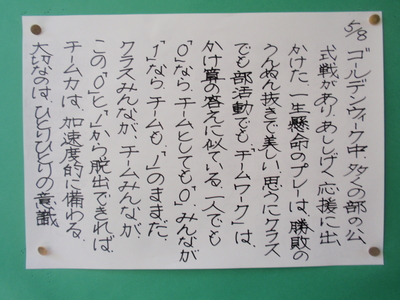 5/8 ゴールデンウィーク中、多くの部の公
式戦があり、あししげく応援に出
かけた。一生懸命のプレーは、勝敗の
うんぬん抜きで美しい。思うにクラス
でも部活動でも、"チームワーク"は、
かけ算の答えに似ている。一人でも
"0"なら、チームとしても"0"。みんなが
"1"なら、チームも、"1"のままだ。
クラスみんなが、チームみんなが、
この"0"と"1"から脱出できれば、
チーム力は、加速度的に備わる。
大切なのは、ひとりひとりの意識